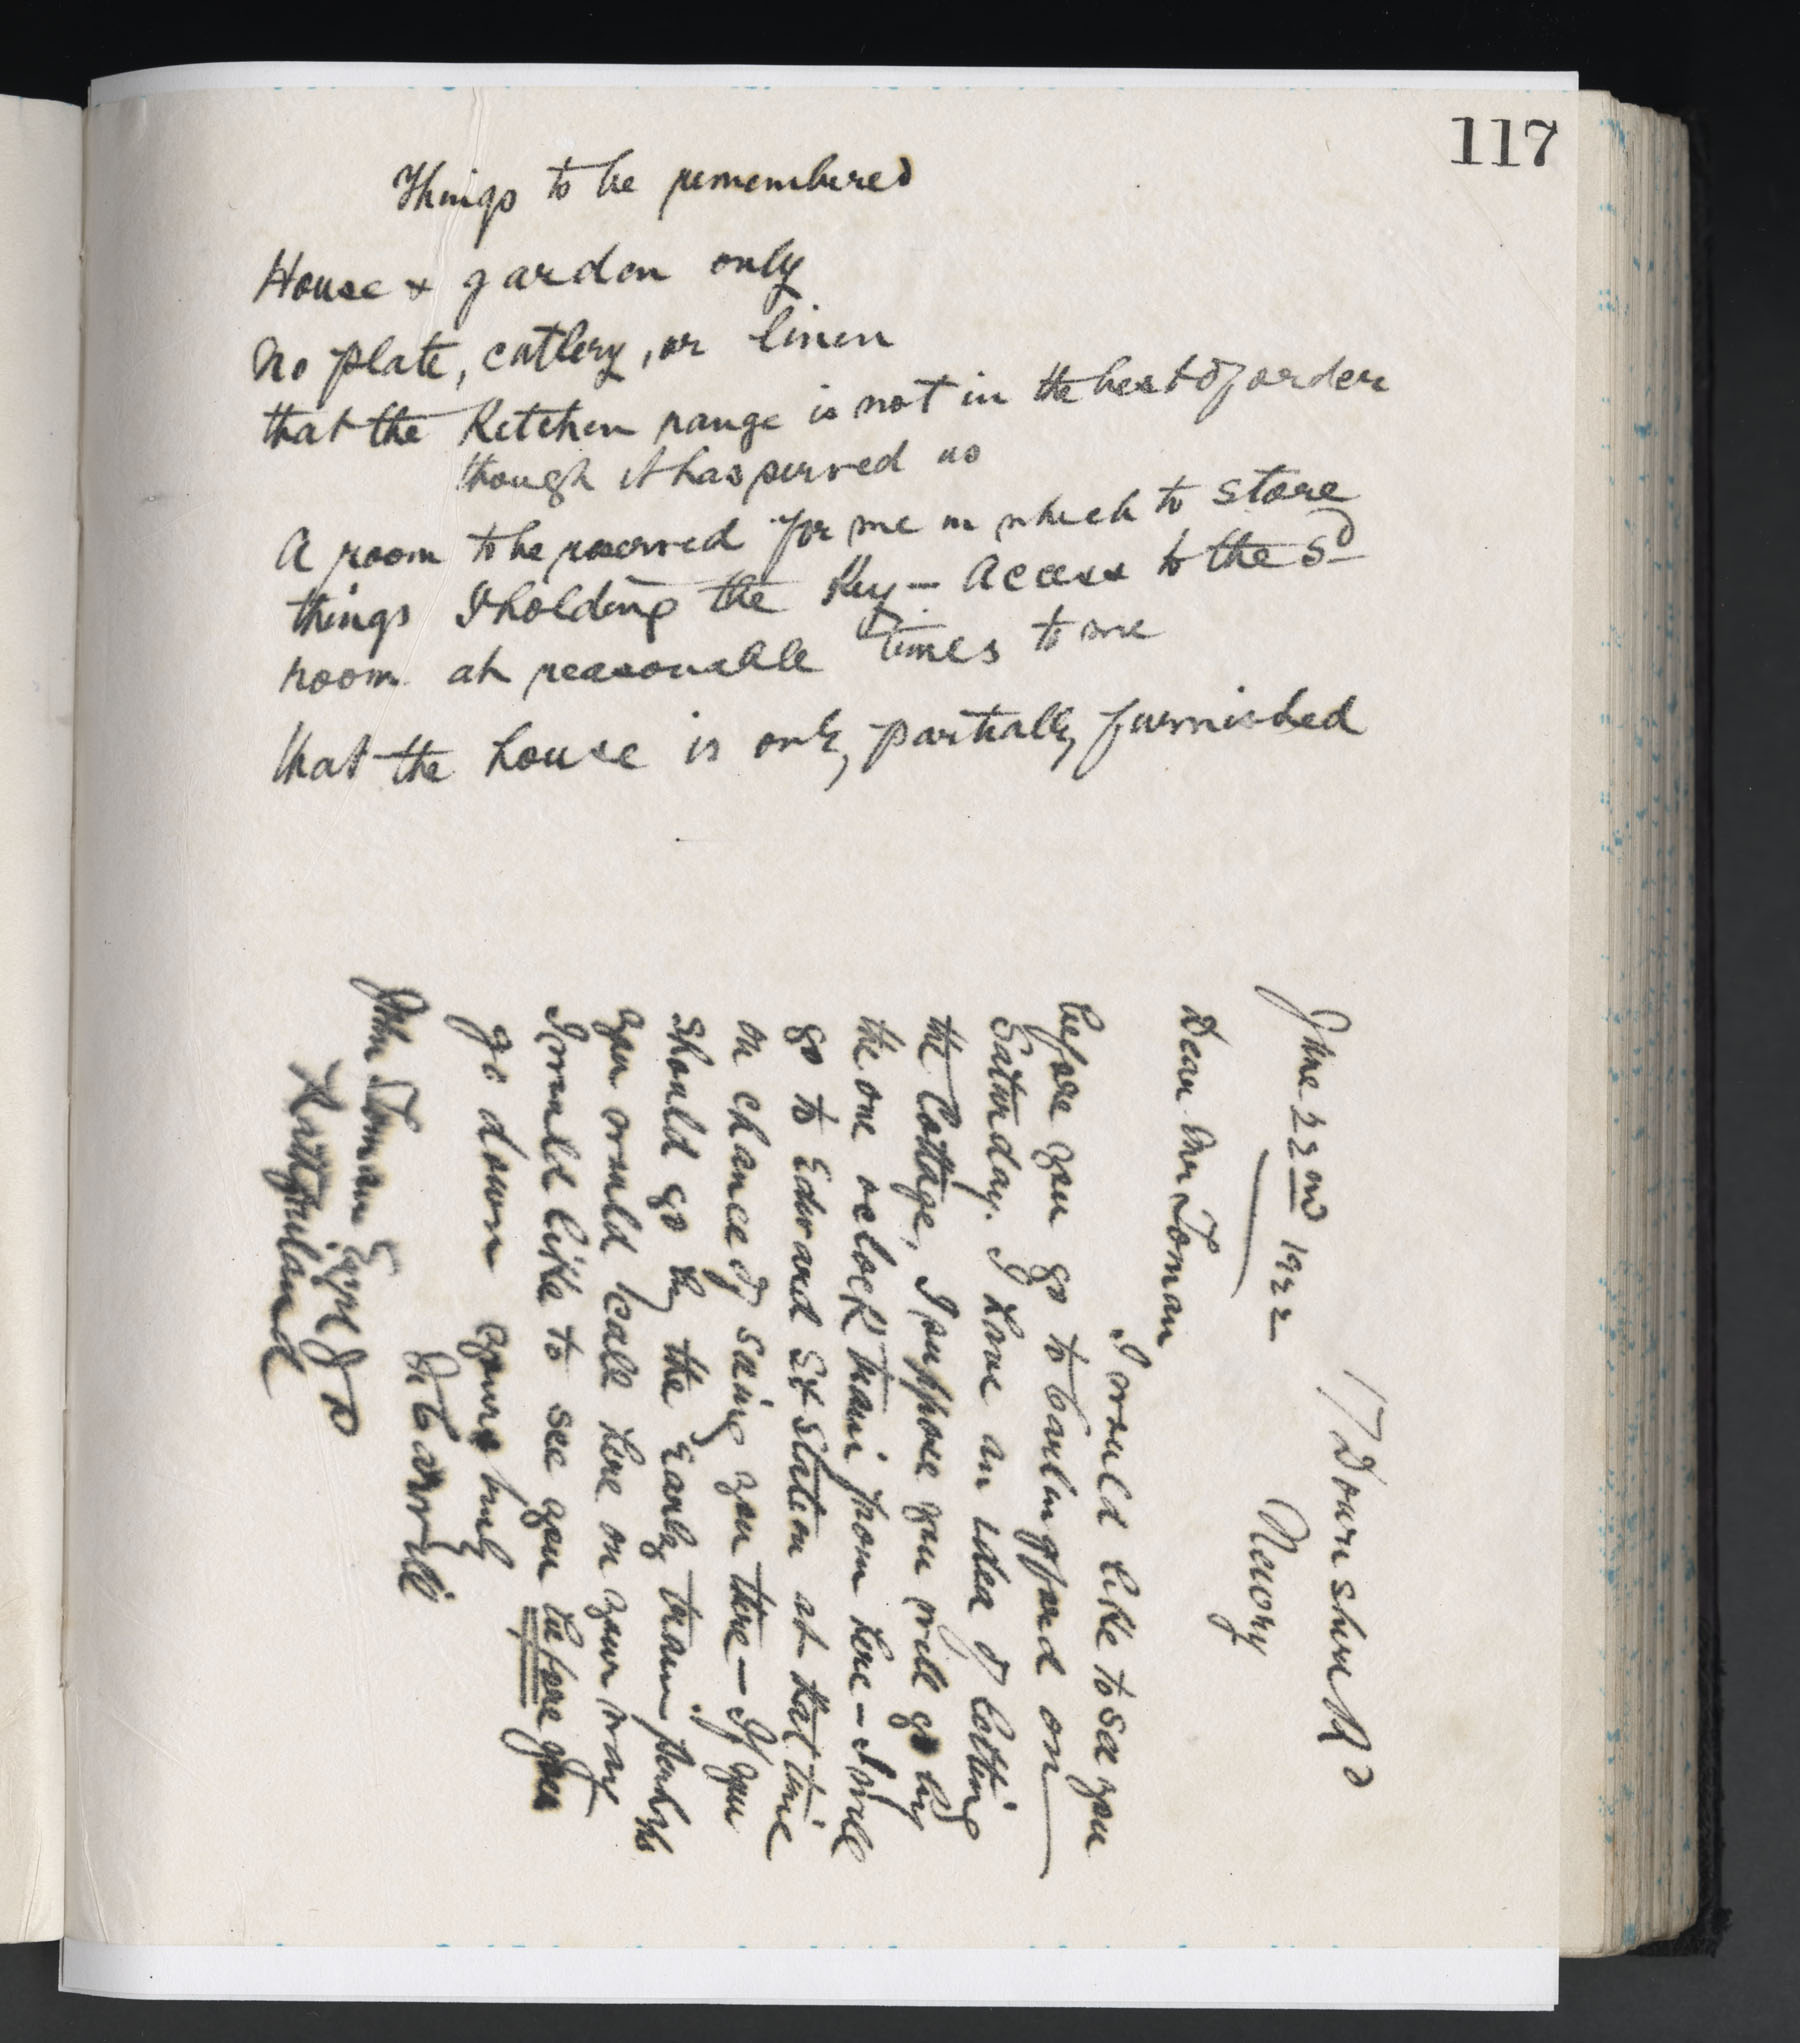 117
Things to be remembered
House & garden only
No plate, cutlery, or linen
that the Kitchen range is not in the best of order
though it has served us
A room to be reserved for me in which to store
things I holding the Key — Access to the sd
room at reasonable times to me
that the house is only partially furnished
17 Downshire Rd
Newry
June 22nd 1922
Dear Mr Toman
I would like to see you
before you go to Carlingford on
Saturday. I have an idea of letting
the Cottage, I suppose you will go by
the one oclock train from here — I will
go to Edward St Station at that time
on chance of seeing you there — If you
should go by the Early train perhaps
you would call here on your way
I would like to see you before you
go down yours truly
John Toman Esqre